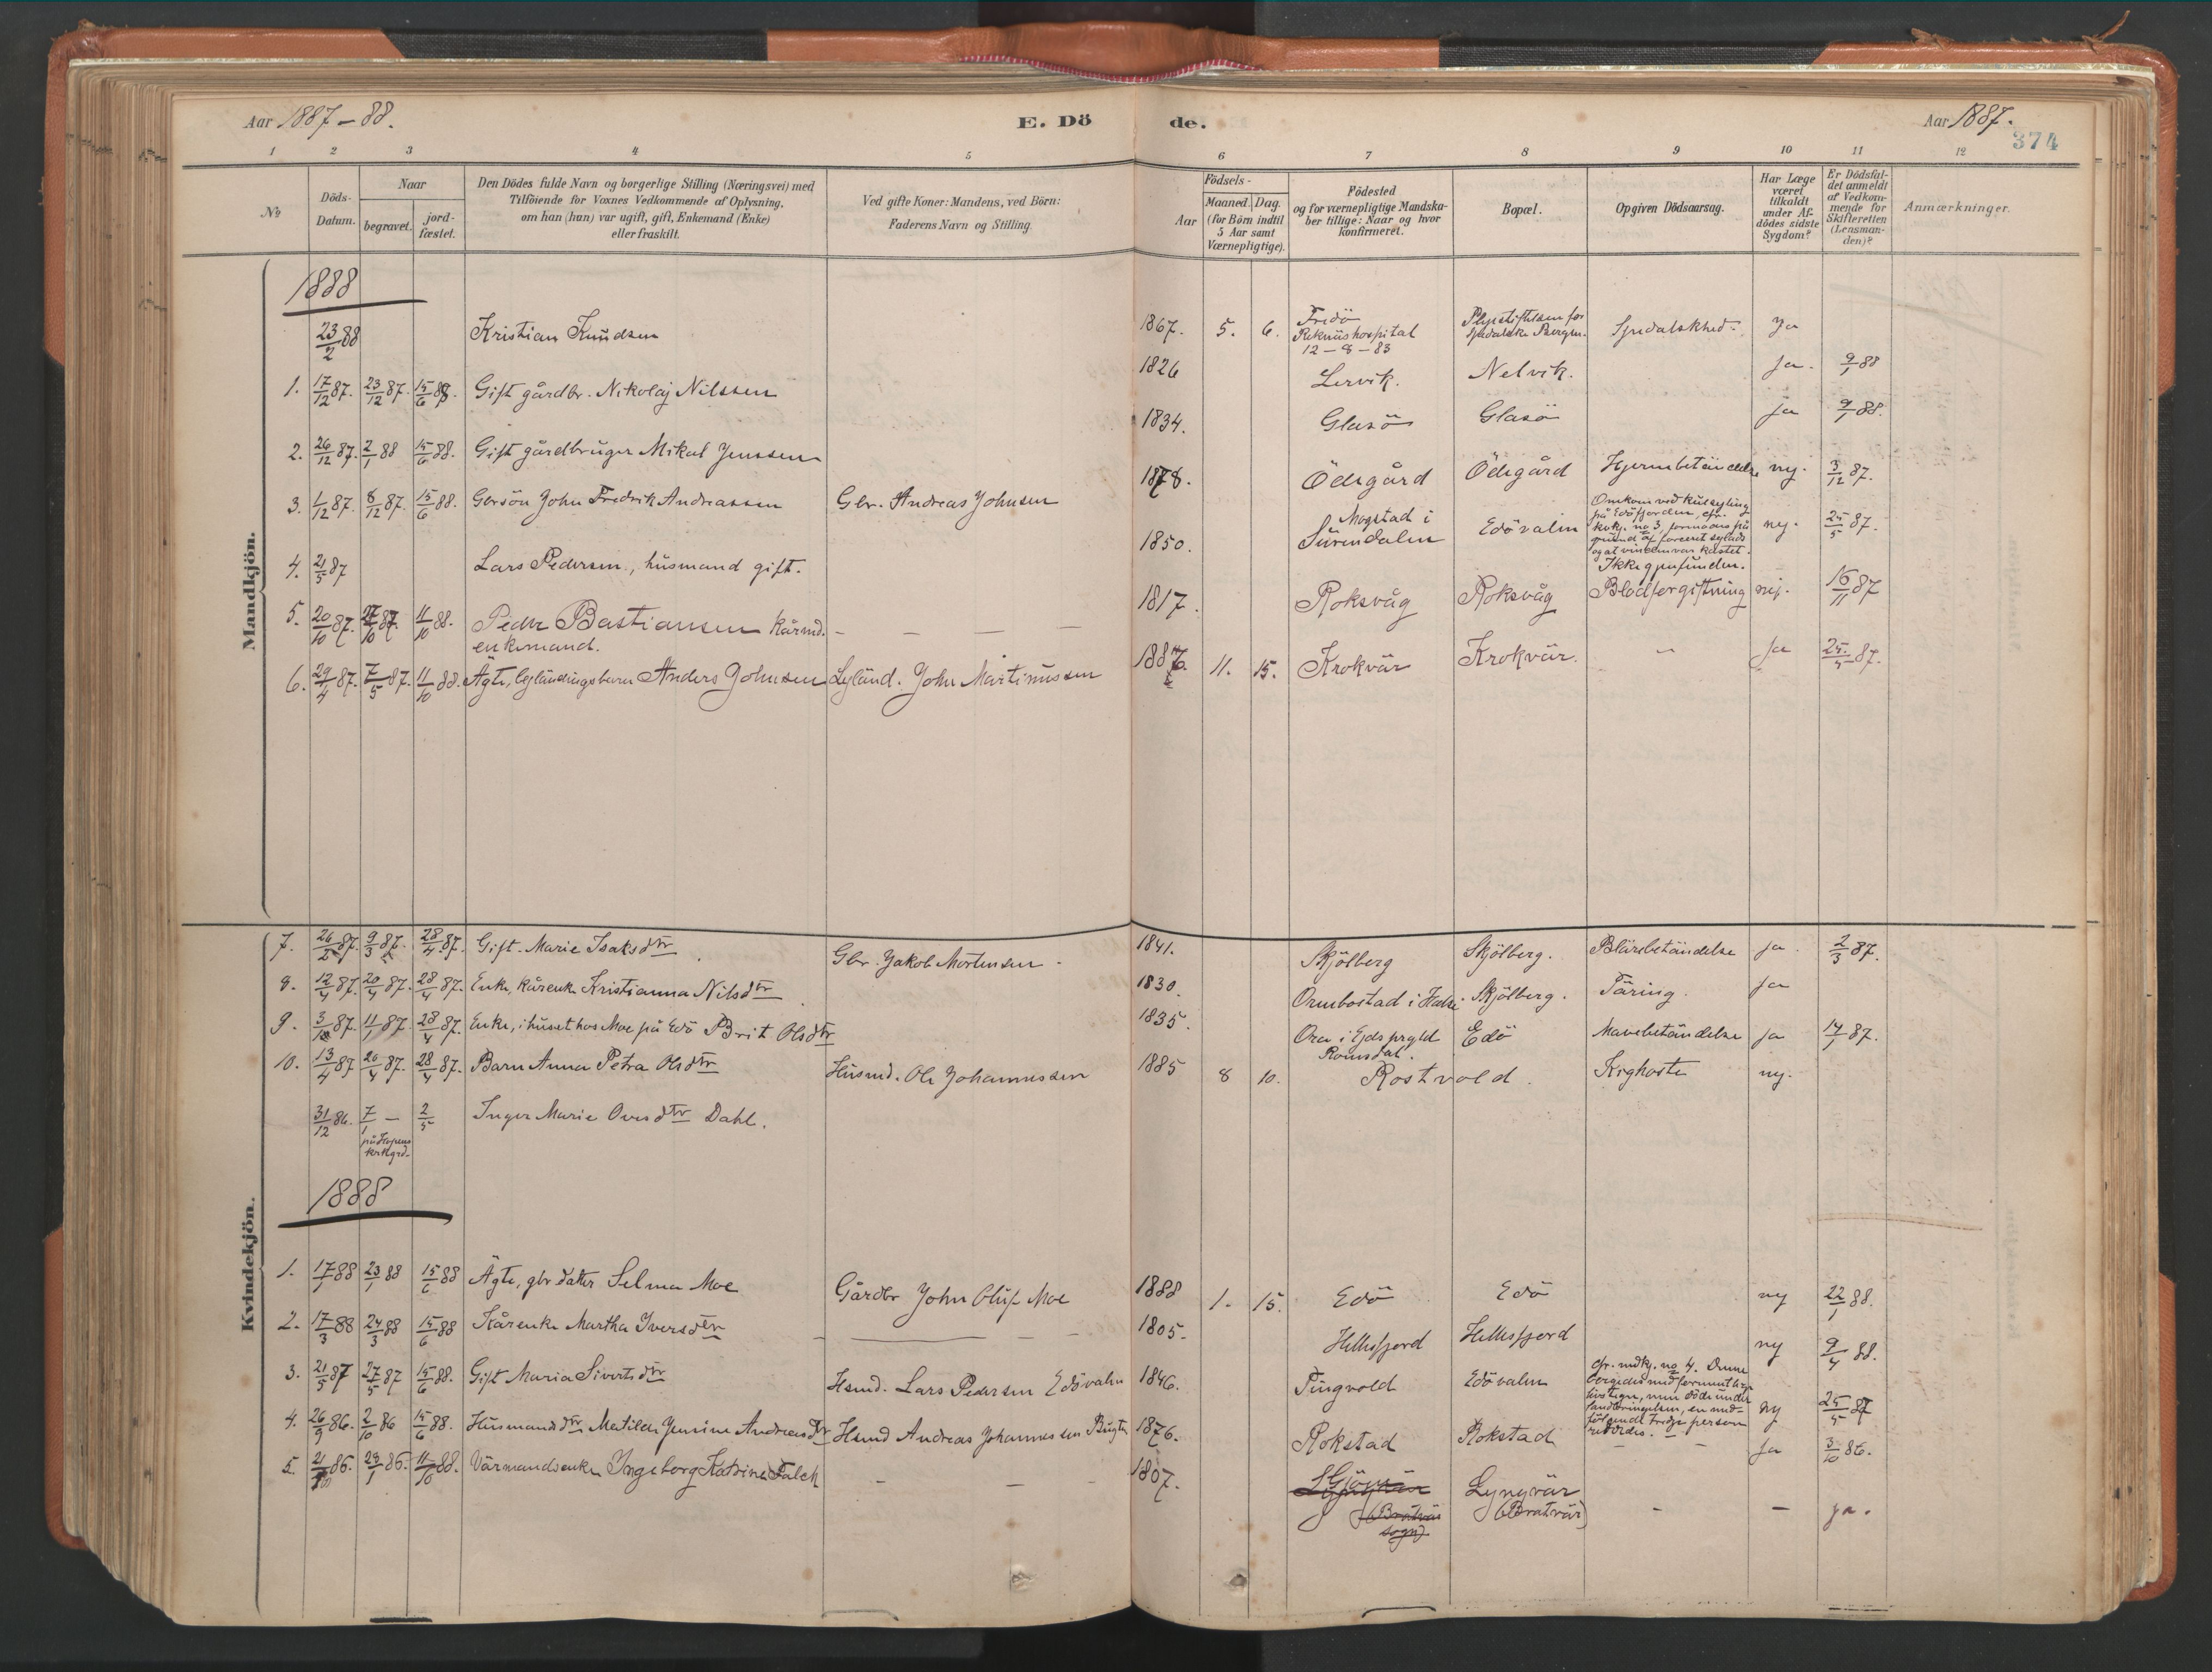 Aar 1887-88.
E. Dö de.
Aar 1887.
374
1 2 3 4 5 6 7 8 9 10 11 12
No
Döds-Datum.
Naar
begravet.
jord-fæstet.
Den Dödes fulde Navn og borgerlige Stilling (Næringsvei) med
Tilföiende for Voxnes Vedkommende af Oplysning,
om han (hun) var ugift, gift, Enkemand (Enke)
eller fraskilt.
Ved gifte Koner: Mandens, ved Börn:
Faderens Navn og Stilling.
Födsels-
Aar
Maaned. Dag.
(for Börn indtil
5 Aar samt
Værnepligtige).
Födested
og for værnepligtige Mandska-
ber tillige: Naar og hvor
konfirmeret.
Bopæl.
Opgiven Dödsaarsag.
Har Læge
været
tilkaldt
under Af-
dödes sidste
Sygdom?
Er Dödsfal-
det anmeldt
af Vedkom-
mende for
Skifteretten
(Lensman-
den)?
Anmærkninger.
Mandkjön.
1888
23/2 88 Kristian Knudsen 1867. 5. 6. Fredö Reknæshospital 12-8-83 Plejestiftelsen for spedalske Bergen. Spedalskhed. Ja
1. 17/12 87. 23/12 87. 15/6 88. Gift gårdbr. Nikolaj Nilssen 1826 Lervik. Nelvik. Ja. 9/1 88
2. 26/12 87. 2/1 88 15/6 88. Gift gårdbruger Mikal Jenssen 1834. Glasö Glasö ja 9/1 88.
3. 1/12 87. 8/12 87. 15/6 88. Gbrsön John Fredrik Andreassen Gbr. Andreas Johnsen 1878. Ödegård Ödegård Hjernebetændelse nej. 3/12 87.
4. 21/5 87 Lars Pedersen, husmand gift. 1850. Mogstad i Surendalen Edövalen Omkom ved kulseyling
på Edöfjorden, cfr.
kvkj. no 3, formodes på
grund af forceret seylads
og at vinden var kastet.
Ikke gjenfunden. nej. 25/5 87.
5. 20/10 87. 27/10 87. 11/10 88. Peder Bastiansen kårmd. enkemand. - - - - 1817. Roksvåg Roksvåg Blodforgiftning nej. 16/11 87
6. 29/4 87. 7/5 87. 11/10 88. Ägte, leylændingsbarn Anders Johnsen Leyländ. John Martinussen 1886. 11. 15. Krokvär Krokvär. - Ja 25/5 87.
Kvindekjön.
7. 26/2 87. 9/3 87. 28/4 87. Gift. Marie Isaksdtr. Gbr. Jakob Mortensen. 1841. Skjölberg Skjölberg. Blärebetändelse ja. 2/3 87.
8. 12/4 87. 20/4 87. 28/4 87. Enke, kårenke Kristianna Nilsdtr. 1830. Ormbostad i Halse Skjölberg. Täring. ja
9. 3/1 87. 11/1 87. 28/4 87. Enke, i huset hos Moe på Edö Brit Olsdtr 1835. Ora i Ejds prgld Romsdal. Edö Mavebetändelse ja 14/1 87.
10. 13/4 87 20/4 87. 28/4 87. Barn Anna Petra Olsdtr Husmd. Ole Johannessen 1885 8 10. Rostvold. Kighoste nej.
31/12 86. 7/1 - 2/5 Inger Marie Ovesdtr Dahl.
på Hopens kirkgrd.
1888
1. 17/1 88 23/1 88 15/6 88 Ägte, gbr datter Selma Moe Gårdbr John Oluf Moe 1888 1. 15. Edö Edö nej 22/1 88.
2. 17/3 88 24/3 88 15/6 88 Kårenke Martha Iversdtr - - - 1805. Hellesfjord Hellesfjord nej 9/4 88.
3. 21/5 87 27/5 87 15/6 88. Gift Maria Sivertsdtr Hsmd. Lars Pedersen Edövalen 1846. Tingvold Edövalen cfr. mdkj. no 4. Denne
bergedes med formentlige
livstegn, men döde under
landbringelsen, en med-
fölgende tredje person
reddedes. nej 25/5 87
4. 26/9 86. 2/10 86 15/6 88. Husmandsdtr Matilde Jensine Andreasdtr Hsmd Andreas Johannessen Bugten 1876. Rokstad Rokstad - - Ja 3/10 86.
5. 21/1 86. 29/1 86. 11/10 88. Värmandsenke Ingeborg Katrine Falck - - 1807. (Bratvär sogn) Lyngvär (Bratvär) - - ja.